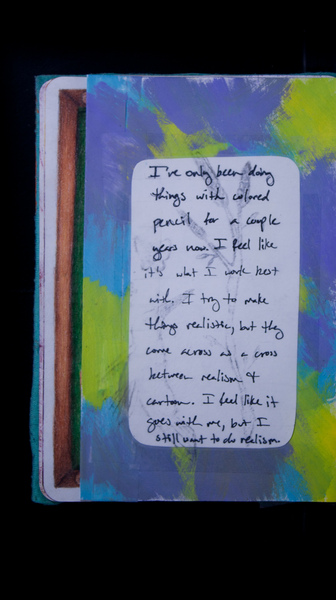 I've only been doing
things with colored
pencil for a couple
years now. I feel like
it's what I work best
with. I try to make
things realistic, but they
come across as a cross
between realism &
cartoon. I feel like it
goes with me, but I
still want to do realism.